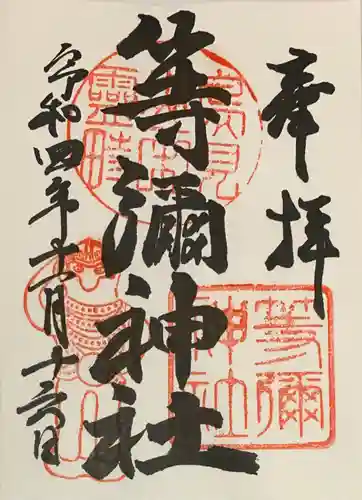 奉拝
等彌神社
令和四年十一月十六日
等彌
神社